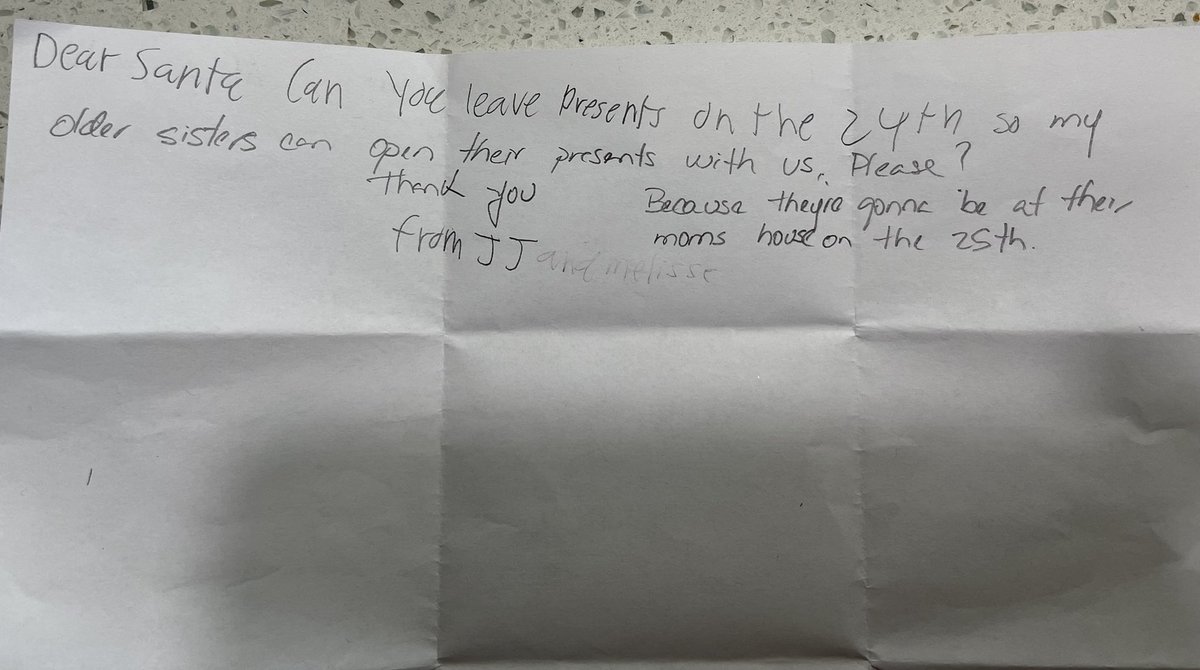 Dear Santa Can You leave Presents on the 24th so my
older sisters can open their presents with us. Please?
Thank you
Because theyre gonna be at their
moms house on the 25th.
from JJ and melisse